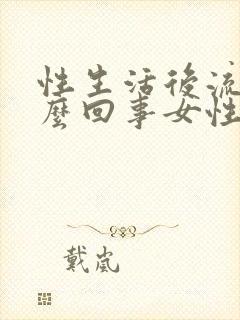 性生活後流
麼回事女性
戴嵐